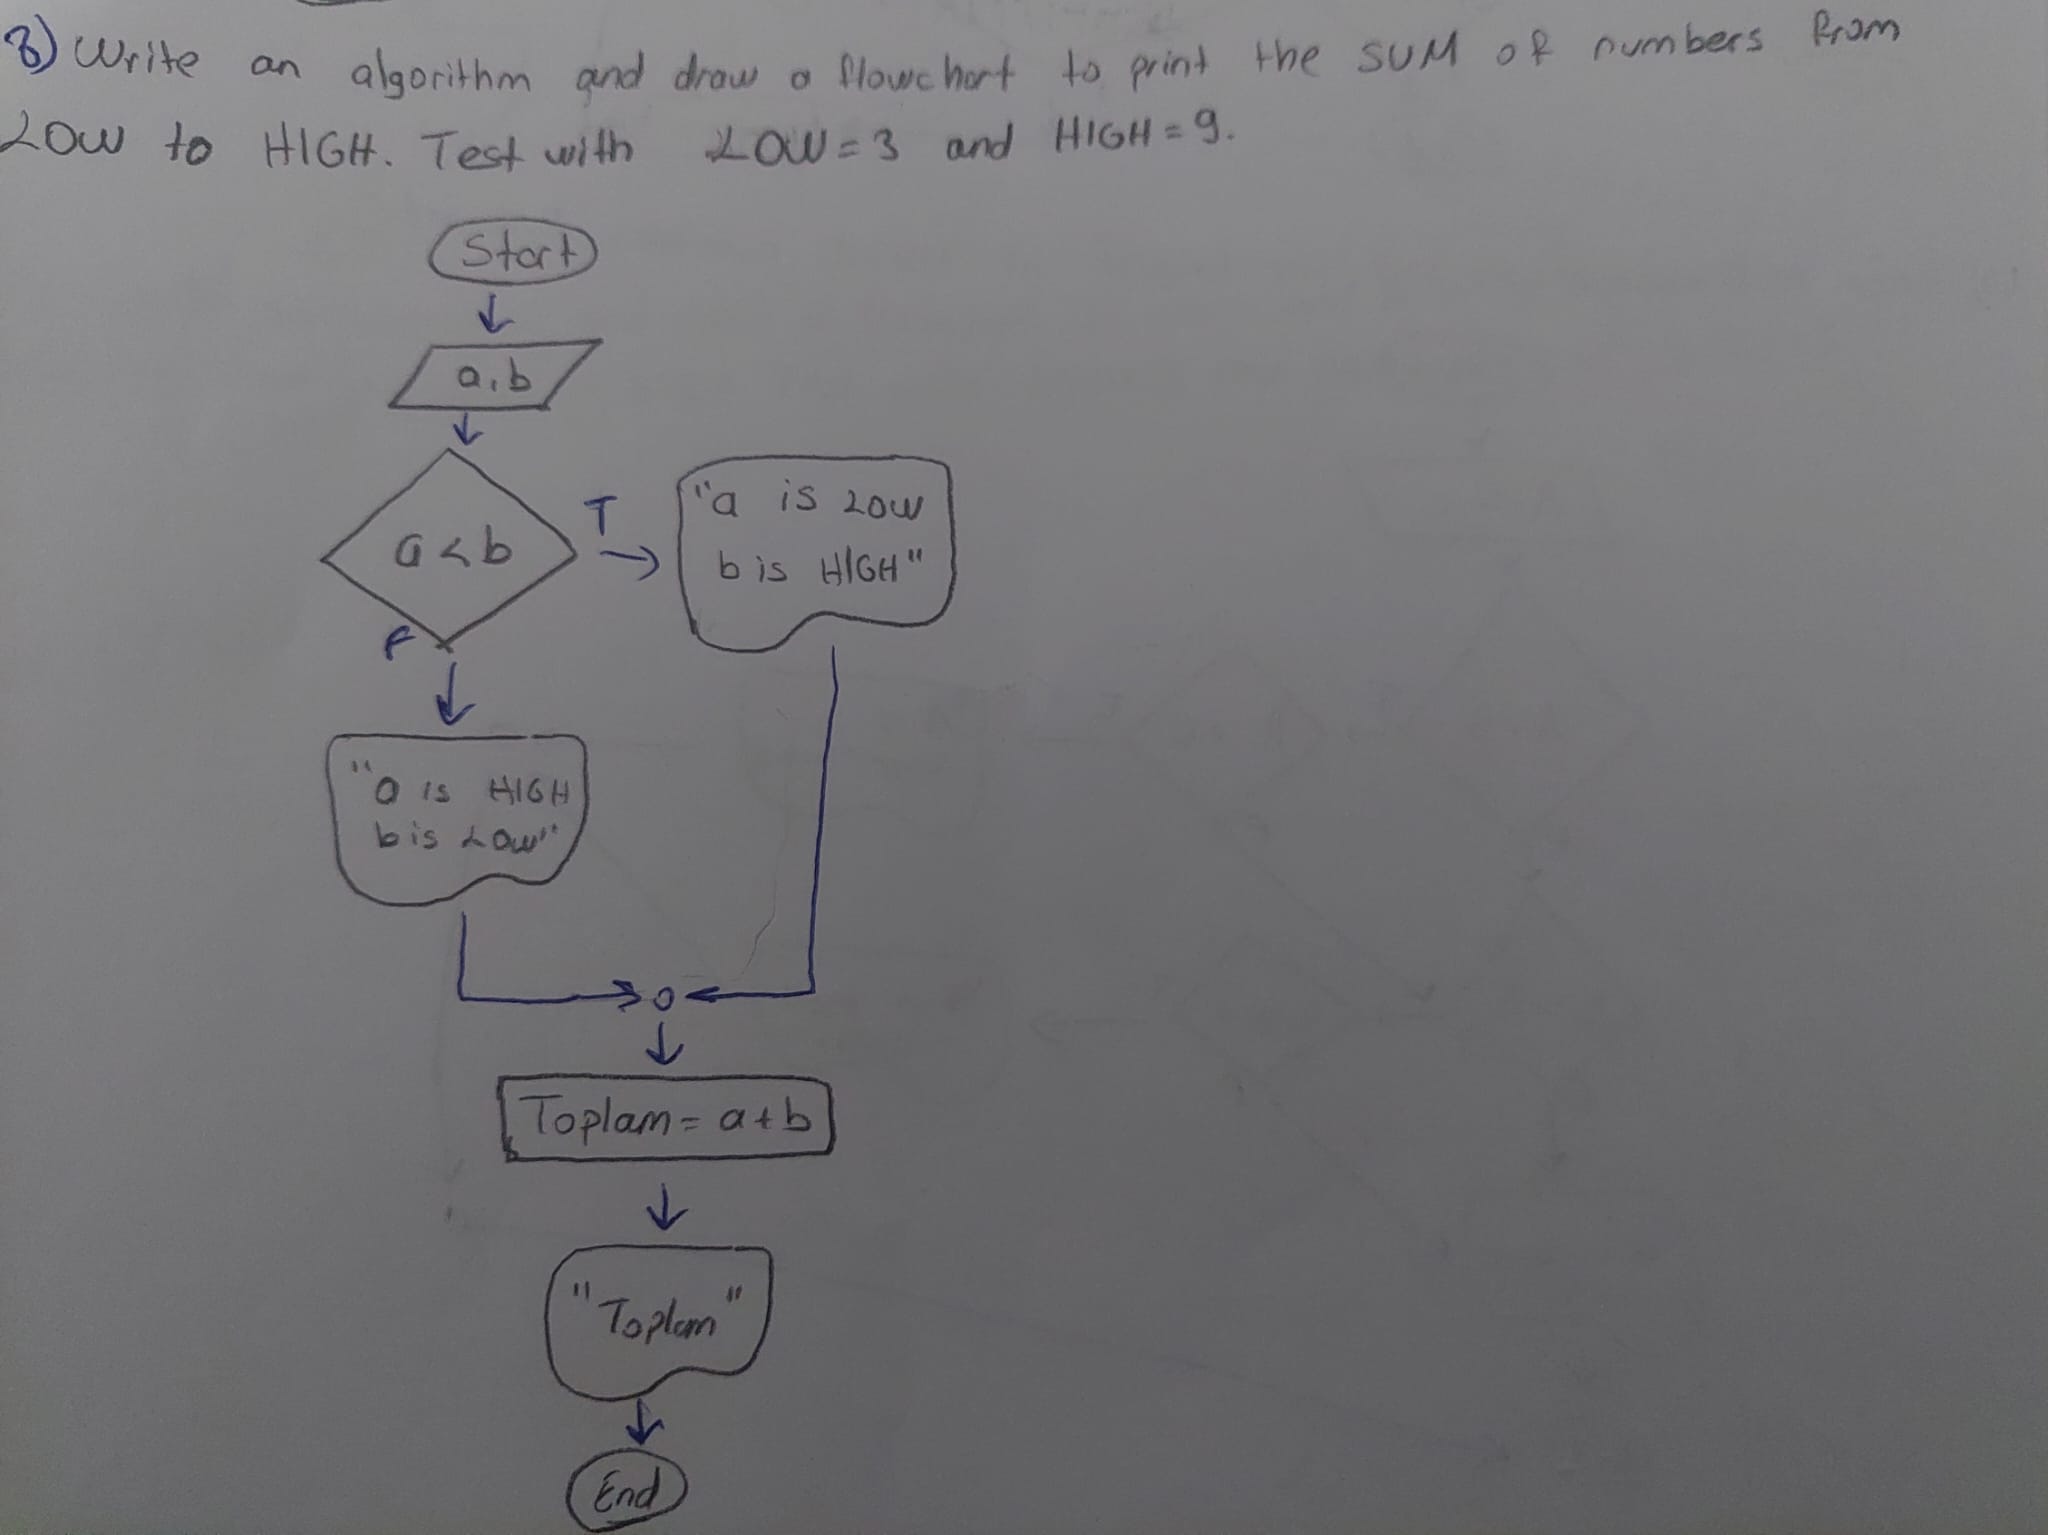 8) Write an algorithm and draw a flowchart to print the SUM of numbers from
LOW to HIGH. Test with LOW=3 and HIGH=9.
Start
a,b
a<b
T
"a is LOW
b is HIGH"
F
"a is HIGH
b is LOW"
Toplam=a+b
"Toplam"
End